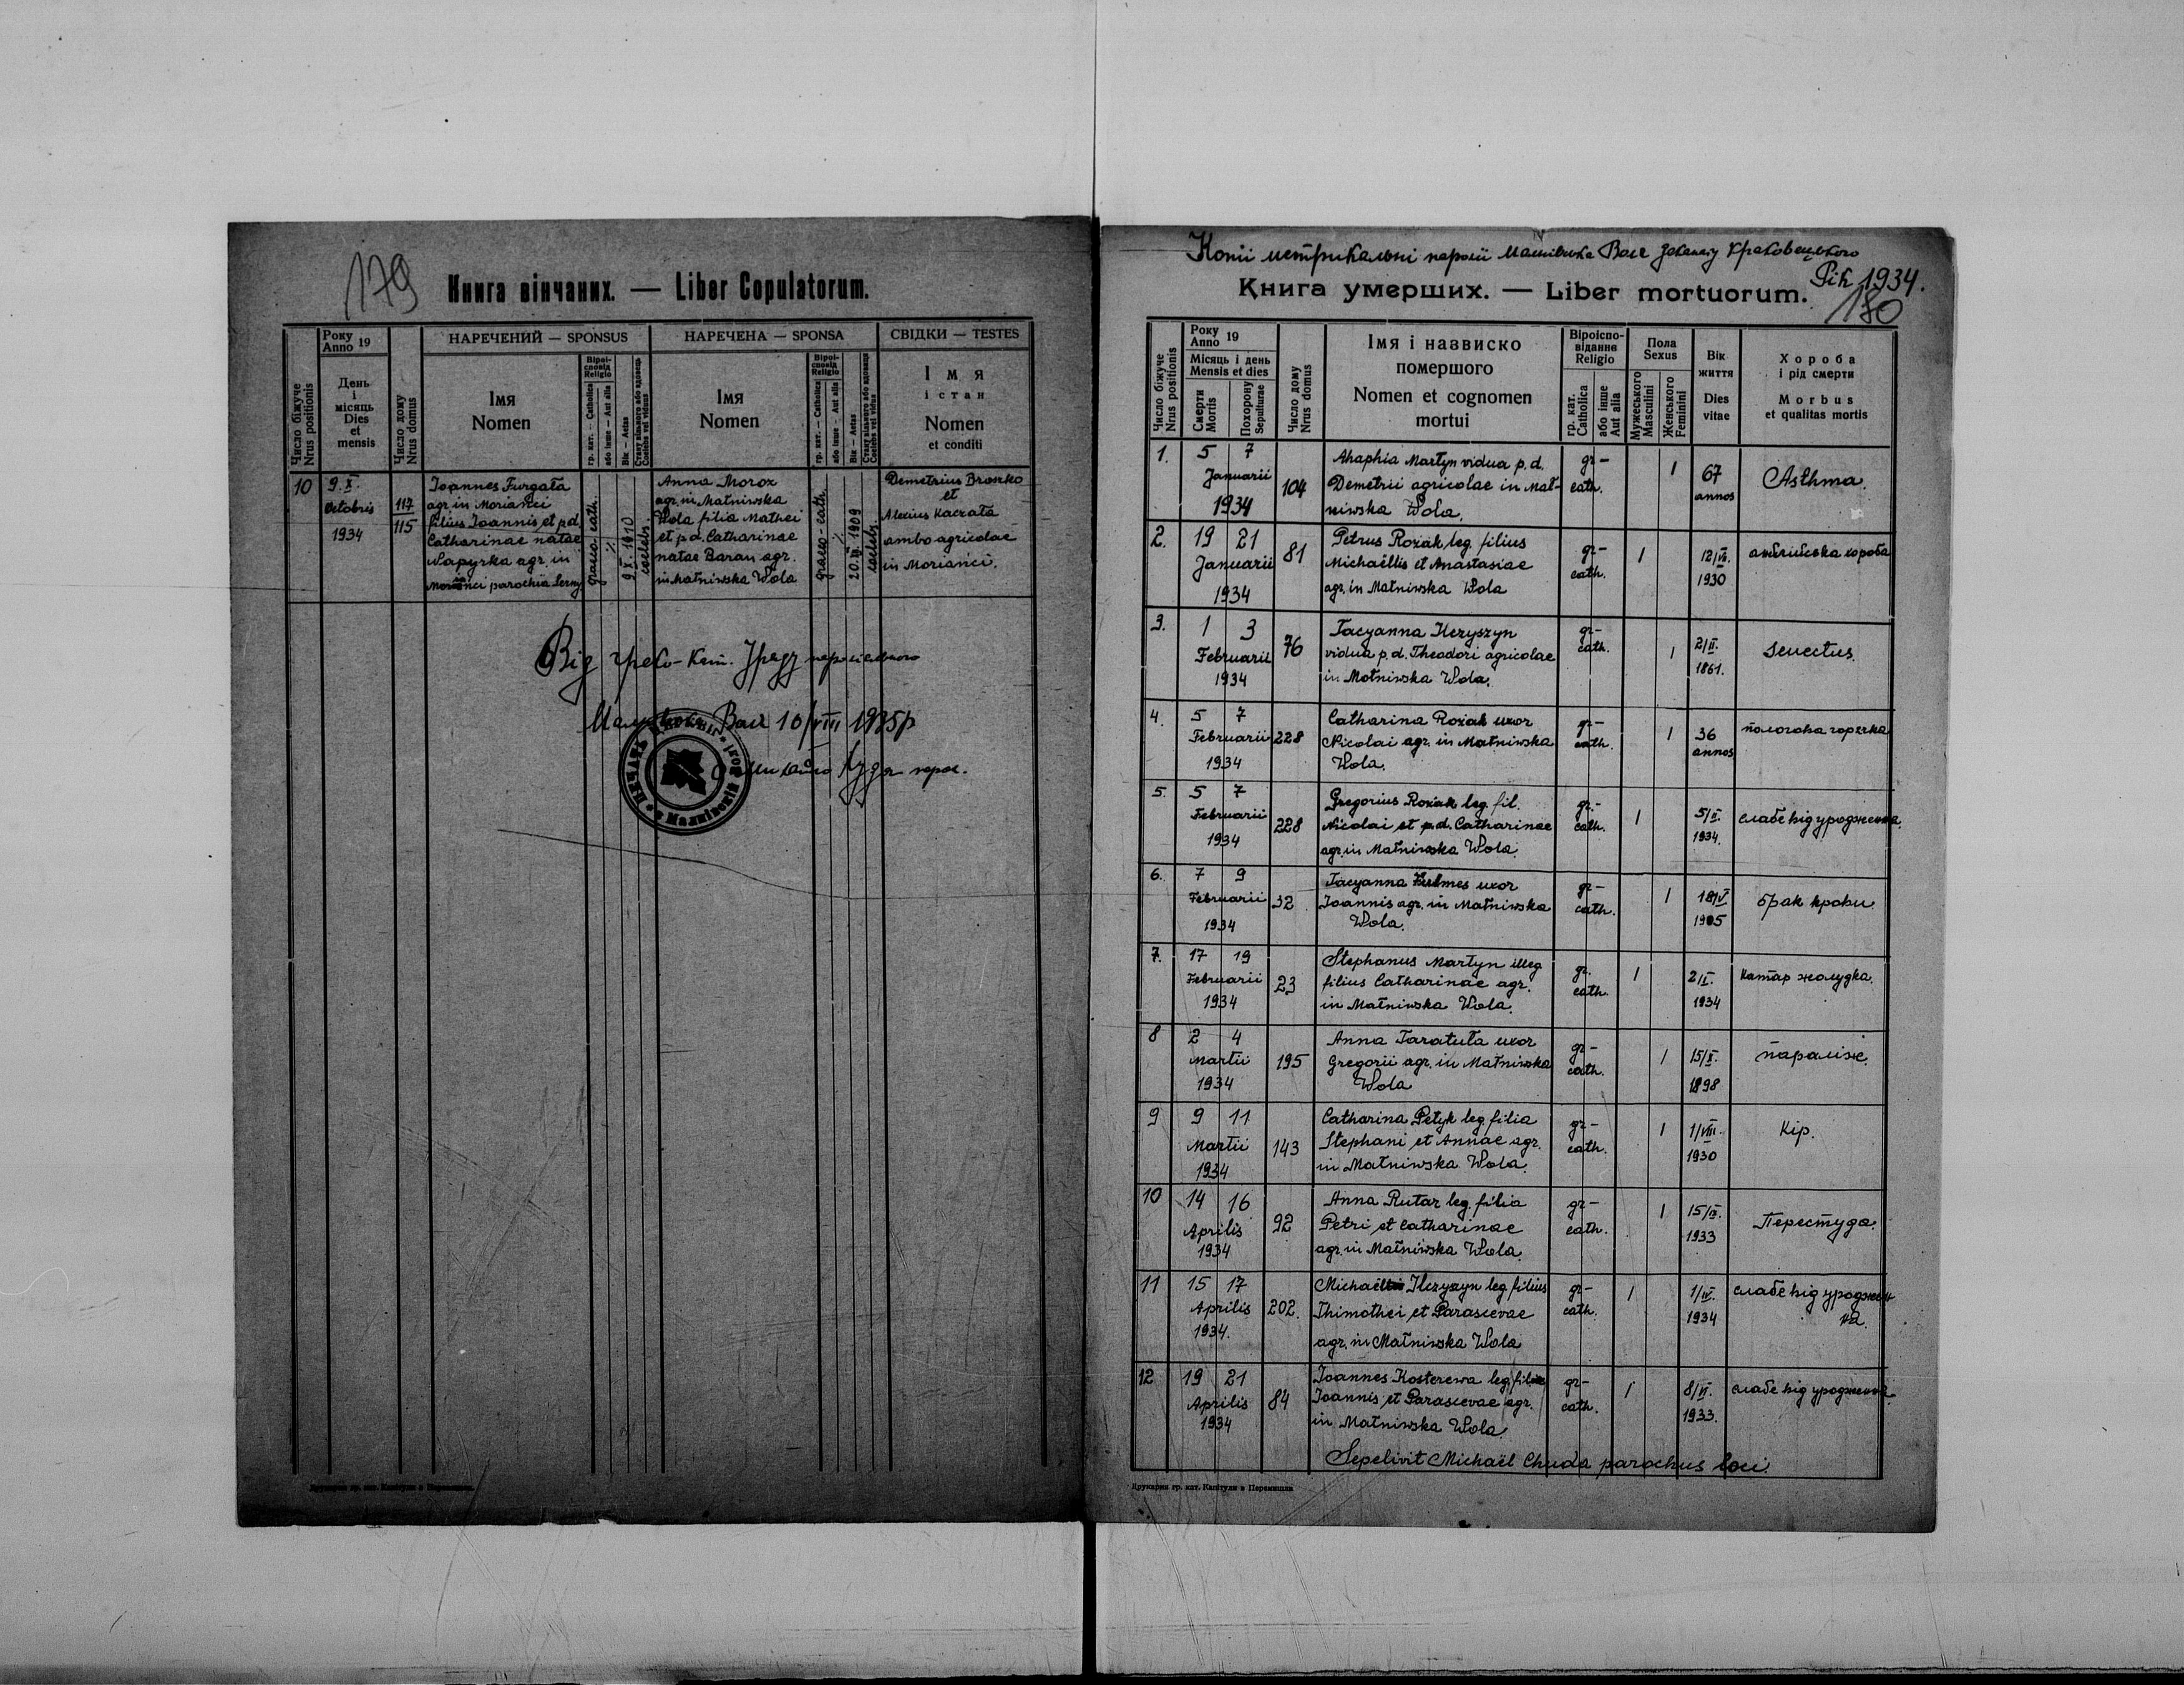 179
Книга вінчаних. — Liber Copulatorum.
Число біжуче
Nrus positionis
Року
Anno 19
День
і
місяць
Dies
et
mensis
Число дому
Nrus domus
НАРЕЧЕНИЙ — SPONSUS
Імя
Nomen
Віроі-
сповід
Religio
гр. кат. — Catholica
або інше — Aut alia
Вік — Aetas
Стану вільного або вдовець
Coelebs vel viduus
НАРЕЧЕНА — SPONSA
Імя
Nomen
Віроі-
сповід
Religio
гр. кат. — Catholica
або інше — Aut alia
Вік — Aetas
Стану вільного або вдовиця
Coelebs vel vidua
СВІДКИ — TESTES
Імя
і стан
Nomen
et conditi
10
9. X.
Octobris
1934
117
115
Joannes Furgała
agr. in Moriańci
filius Joannis et p.d.
Catharinae natae
Łapyrka agr. in
Moriańci parochia
graeco-cath.
9 X. 1910
coelebs.
Anna Moroz
agr. in Małniwska
Wola filia Mathei
et p.d. Catharinae
natae Baran agr.
in Małniwska Wola
graeco-cath.
coelebs.
Demetrius Bronko
et
Alexius Kaczała
ambo agricolae
in Moriańci.
Від греко-кат. Уряду парохіяльного
Малнівска Воля 10/VIII 1935р
Михайло Худа парох.
Книга умерших. — Liber mortuorum.
Копії метрикальні парохії Малнівска Воля деканату Краковецького
Рік 1934.
180
Число біжуче
Nrus positionis
Року
Anno 19
Місяць і день
Mensis et dies
Смерти
Mortis
Похорону
Sepulturae
Число дому
Nrus domus
Імя і назвиско
помершого
Nomen et cognomen
mortui
Віроіспо-
відання
Religio
гр. кат.
Catholica
або інше
Aut alia
Пола
Sexus
Мужеського
Masculini
Женського
Feminini
Вік
життя
Dies
vitae
Хороба
і рід смерти
Morbus
et qualitas mortis
1. 5 7
Januarii
1934
104
Ahaphia Martyn vidua p.d.
Demetrii agricolae in Mał-
niwska Wola.
gr-
cath.
1
67
annos
Asthma.
2. 19 21
Januarii
1934
81
Petrus Rożak leg. filius
Michaëllis et Anastasiae
agr. in Małniwska Wola
gr-
cath.
1
12/VI.
1930
англійська хороба
3. 1 3
Februarii
1934
76
Tacyanna Ilczyszyn
vidua p.d. Theodori agricolae
in Małniwska Wola.
gr-
cath.
1
2/II.
1861.
Senectus.
4. 5 7
Februarii
1934
228
Catharina Rożak uxor
Nicolai agr. in Małniwska
Wola.
gr-
cath.
1
36
annos
пологова горячка
5. 5 7
Februarii
1934
228
Gregorius Rożak leg. fil.
Nicolai et p.d. Catharinae
agr. in Małniwska Wola.
gr.-
cath.
1
5/II.
1934.
слабе від уродження.
6. 7 9
Februarii
1934
32
Tacyanna uxor
Joannis agr. in Małniwska
Wola.
gr-
cath.
1
18/V
1905
брак крови.
7. 17 19
Februarii
1934
23
Stephanus Martyn illeg
filius Catharinae agr.
in Małniwska Wola.
gr.
cath.
1
2/II.
1934
катар жолудка.
8 2 4
Martii
1934
195
Anna Taratuta uxor
Gregorii agr. in Małniwska
Wola
gr-
cath.
1
15/X.
1898
параліж.
9 9 11
Martii
1934
143
Catharina Petyk leg. filia
Stephani et Annae agr.
in Małniwska Wola.
gr-
cath.
1
1/VIII.
1930
Кір.
10 14 16
Aprilis
1934
92
Anna Rutar leg. filia
Petri et Catharinae
agr. in Małniwska Wola.
gr-
cath.
1
15/IX.
1933
Перестуда.
11 15 17
Aprilis
1934.
202.
leg. filius
Thimothei et Parascevae
agr. in Małniwska Wola
gr-
cath.
1
1/IV.
1934
слабе від уроджен
ня.
12 19 21
Aprilis
1934
84
Joannes Kosterewa leg. filius
Joannis et Parascevae agr.
in Małniwska Wola.
gr-
cath.
1
8/VI.
1933.
слабе від уродження.
Sepelivit Michaël Chuda parochus loci.
Друкарня гр. кат. Капітули в Перемишли
Друкарня гр. кат. Капітули в Перемишли